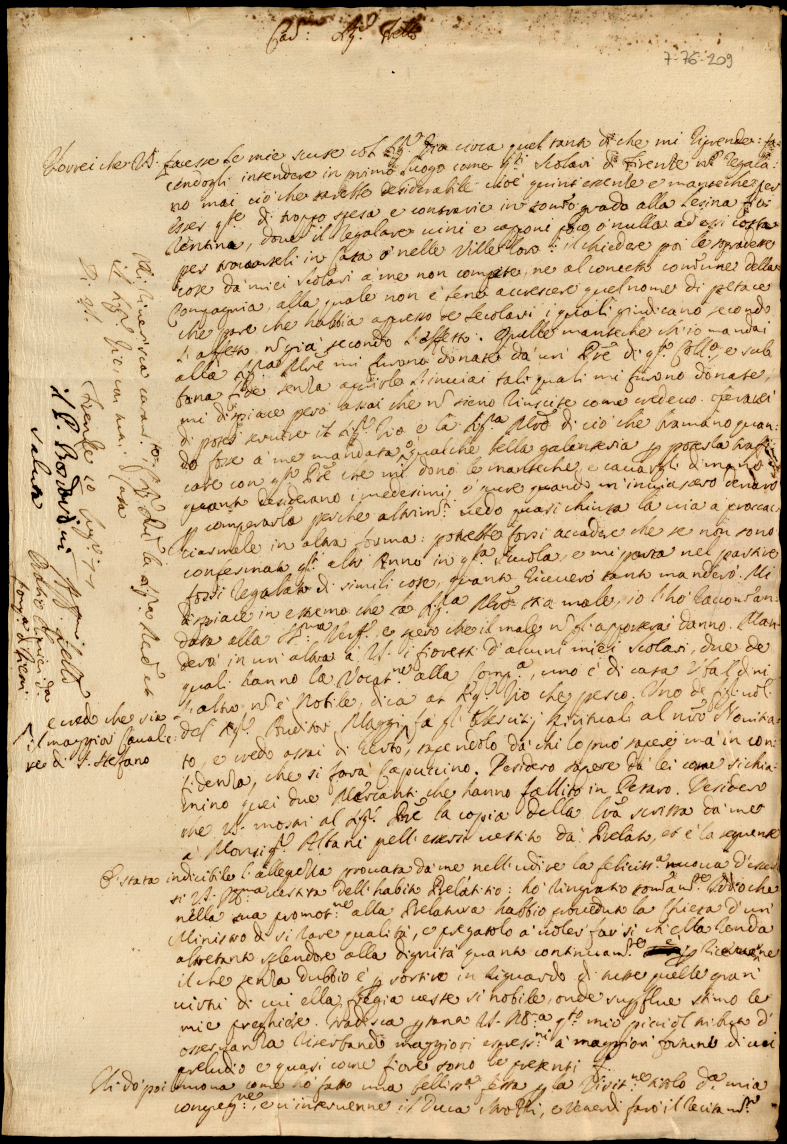 Car: Sig: frello
7-76-209
Vorrei che V.S. facesse le mie scuse col Sig: Zio circa quel tanto che mi riprende: fa
cendogli intendere in primo luogo come gl: scolari di Firenze nō regala
no mai ciò che sarebbe desiderabile cioè quint'essenze e manteche per
esser q.te di troppo spesa e contrarie in sommo grado alla Lesina Fio
rentina, dove il regalare vini e caponi poco o nulla ad essi costa
per trovarseli in casa ò nelle Ville loro: il chiedere poi le sopradette
cose da miei scolari a me non compete, ne al concetto comune della
Compagnia, alla quale non è bene accrescere quel nome di
che pare che habbia appresso de secolari i quali giudicano secondo
l'affetto, nō già secondo l'effetto. Quelle manteche ch'io mandai
alla Sig.ra Mřē mi furono donate da un Pře di q.to Coll.o, e sub
bona fide senza aprirle l'inviai tali quali mi furono donate,
mi dispiace però assai che nō sieno riuscite come credevo:
di poter servire il Sig: Zio e la Sig.ra Mřē di ciò che bramano quan
do fosse a me mandata qualche bella galanteria p poterla baratt
care con q.to Pře che mi donò le manteche, e cavargli di mano
quante desiderano i medesimi, o pure quando m'inviassero denaro
p comperarle perche altrim.ti vedo quasi chiusa la via a procac
ciarmele in altra forma: potrebbe forsi accadere che se non sono
confermato q.st' altro Anno in q.sta scuola, e mi parta nel partire
fossi regalato di simili cose, quante riceverò tante manderò. Mi
dispiace in estremo che la Sig.ra Mřē stia male, io l'hò raccoman
data alla SS.ma Verg. e spero che il male nō gl'apporterà danno. Man
derò in un altra a V.S. i fioretti d'alcuni miei scolari, due de
quali hanno la Vocat.ne alla Comp.a, uno è di casa Ubaldini
l'altro nō è Nobile, dica al Sig: Zio che pesco. Uno de figliuoli
del Sig: Auditor Maggi fa gl'Esercitij spirituali al nřo Novitia
to, e credo assai di certo, sapendolo da chi lo può sapere ma in con
fidenza, che si farà Capuccino. Desidero sapere da lei come si chia
mino quei due Mercanti che hanno fallito in Pesaro. Desidero
che V.S. mostri al Sig: Pře la copia della lřa scritta da me
a Monsig: Albani nell'essersi vestito da Prelato, et è la seguente
È stata indicibile l'allegrezza provata da me nell'udire la feliciss.a nuova d'esser
si V.S. Ill.ma vestita dell'habito Prelatitio: hò ringratiato somam.te Iddio che
nella sua promot.ne alla Prelatura habbia proveduta la Chiesa d'un
Ministro di sì rare qualità, e pregatolo a voler far sì ch'ella renda
altretanto splendore alla dignità quanto continuam.te ne riceve
il che senza dubbio è p sortire in riguardo di tutte quelle gran
virtù di cui ella fregia veste sì nobile, onde superflue stimo le
mie preghiere. Gradisca p tanto V.S. Ill.ma q.sto mio picciol tributo d'
osservanza riserbandomi maggiori espress.ni à maggiori fortune di cui
preludio e quasi come fiore sono le presenti
Gli dò poi nuova come hò fatto una belliss.a festa p la Visit.ne titolo d.a mia
congreg.ne, e v'intervenne il Duca Strozzi, e Venerdì farò il Recitam.to
Mi riverisca
il Sig: Zio con mai casa
D. V.S.
Firenze 10 Lug: 77
il P. Bordoni
saluta
Aff.mo frello
Oratio Olivieri da
Comp.a di Giesù
e credo che sia
il maggior Cavalie
re di S. Stefano